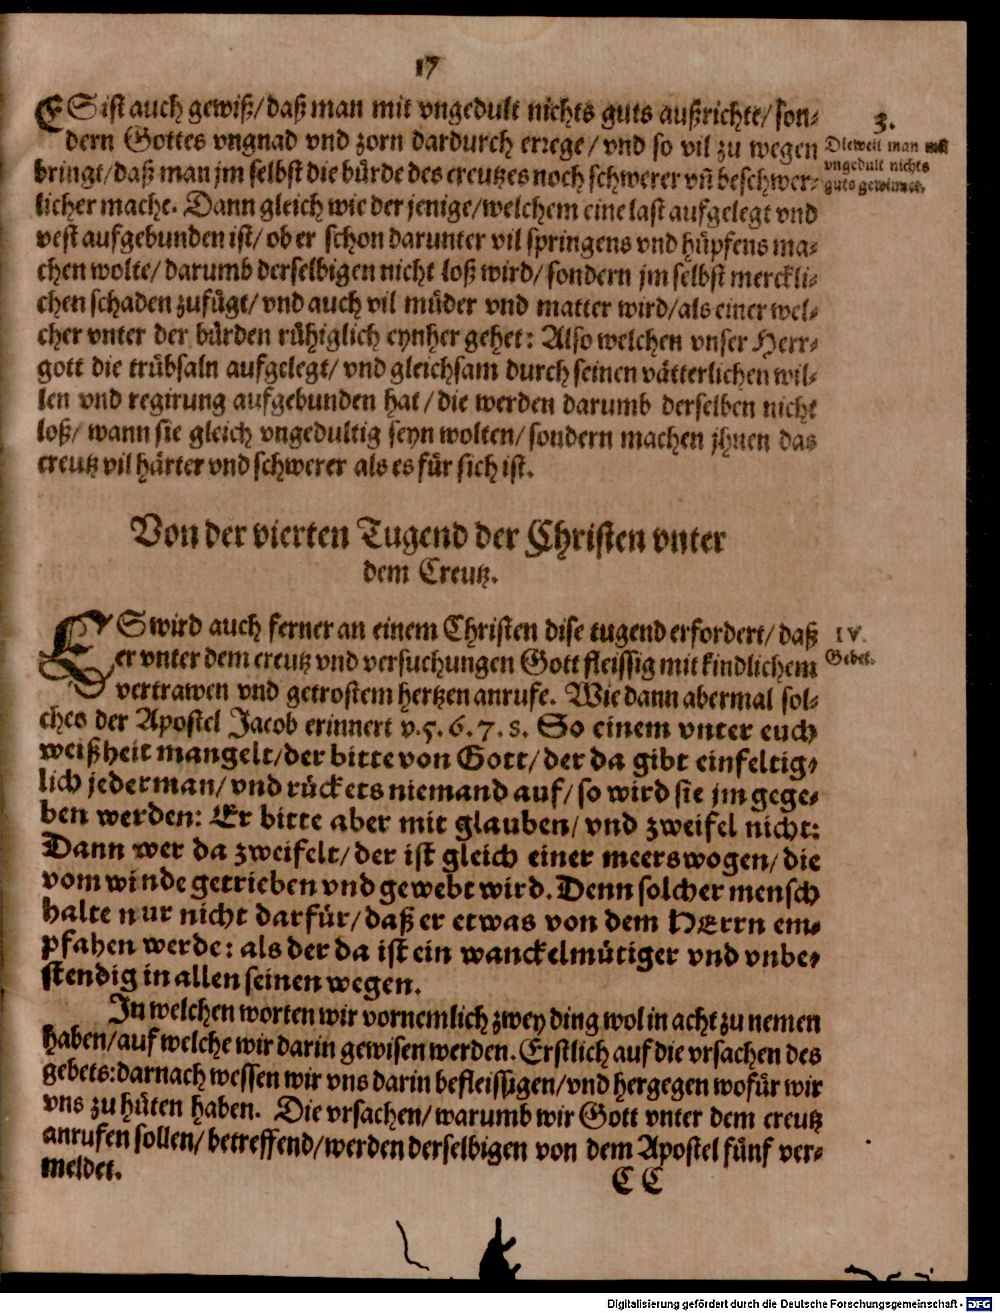 17
ES ist auch gewiß/ daß man mit vngedult nichts guts außrichte/ son-
dern Gottes vngnad vnd zorn dardurch errege/ vnd so vil zu wegen
bringt/ daß man jm selbst die bürde des creutzes noch schwerer vñ beschwer-
licher mache. Dann gleich wie der jenige/ welchem eine last aufgelegt vnd
vest aufgebunden ist/ ob er schon darunter vil springens vnd hüpfens ma-
chen wolte/ darumb derselbigen nicht loß wird/ sondern jm selbst merckli-
chen schaden zufügt/ vnd auch vil müder vnd matter wird/ als einer wel-
cher vnter der bürden rühiglich eynher gehet: Also welchen vnser Herr-
gott die trübsaln aufgelegt/ vnd gleichsam durch seinen vätterlichen wil-
len vnd regirung aufgebunden hat/ die werden darumb derselben nicht
loß/ wann sie gleich vngedultig seyn wolten/ sondern machen jhnen das
creutz vil härter vnd schwerer als es für sich ist.
3.
Dieweil man mit
vngedult nichts
guts gewinnet.
Von der vierten Tugend der Christen vnter
dem Creutz.
ES wird auch ferner an einem Christen dise tugend erfordert/ daß
er vnter dem creutz vnd versuchungen Gott fleissig mit kindlichem
vertrawen vnd getrostem hertzen anrufe. Wie dann abermal sol-
ches der Apostel Jacob erinnert v. 5. 6. 7. 8. So einem vnter euch
weißheit mangelt/ der bitte von Gott/ der da gibt einfeltig-
lich jederman/ vnd rückets niemand auf/ so wird sie jm gege-
ben werden: Er bitte aber mit glauben/ vnd zweifel nicht:
Dann wer da zweifelt/ der ist gleich einer meerswogen/ die
vom winde getrieben vnd gewebt wird. Denn solcher mensch
halte nur nicht darfür/ daß er etwas von dem HErrn em-
pfahen werde: als der da ist ein wanckelmütiger vnd vnbe-
stendig in allen seinen wegen.
IV.
Gebet.
In welchen worten wir vornemlich zwey ding wol in acht zu nemen
haben/ auf welche wir darin gewisen werden. Erstlich auf die vrsachen des
gebets: darnach wessen wir vns darin befleissigen/ vnd hergegen wofür wir
vns zu hüten haben. Die vrsachen/ warumb wir Gott vnter dem creutz
anrufen sollen/ betreffend/ werden derselbigen von dem Apostel fünf ver-
meldet.
C C
Digitalisierung gefördert durch die Deutsche Forschungsgemeinschaft - DFG